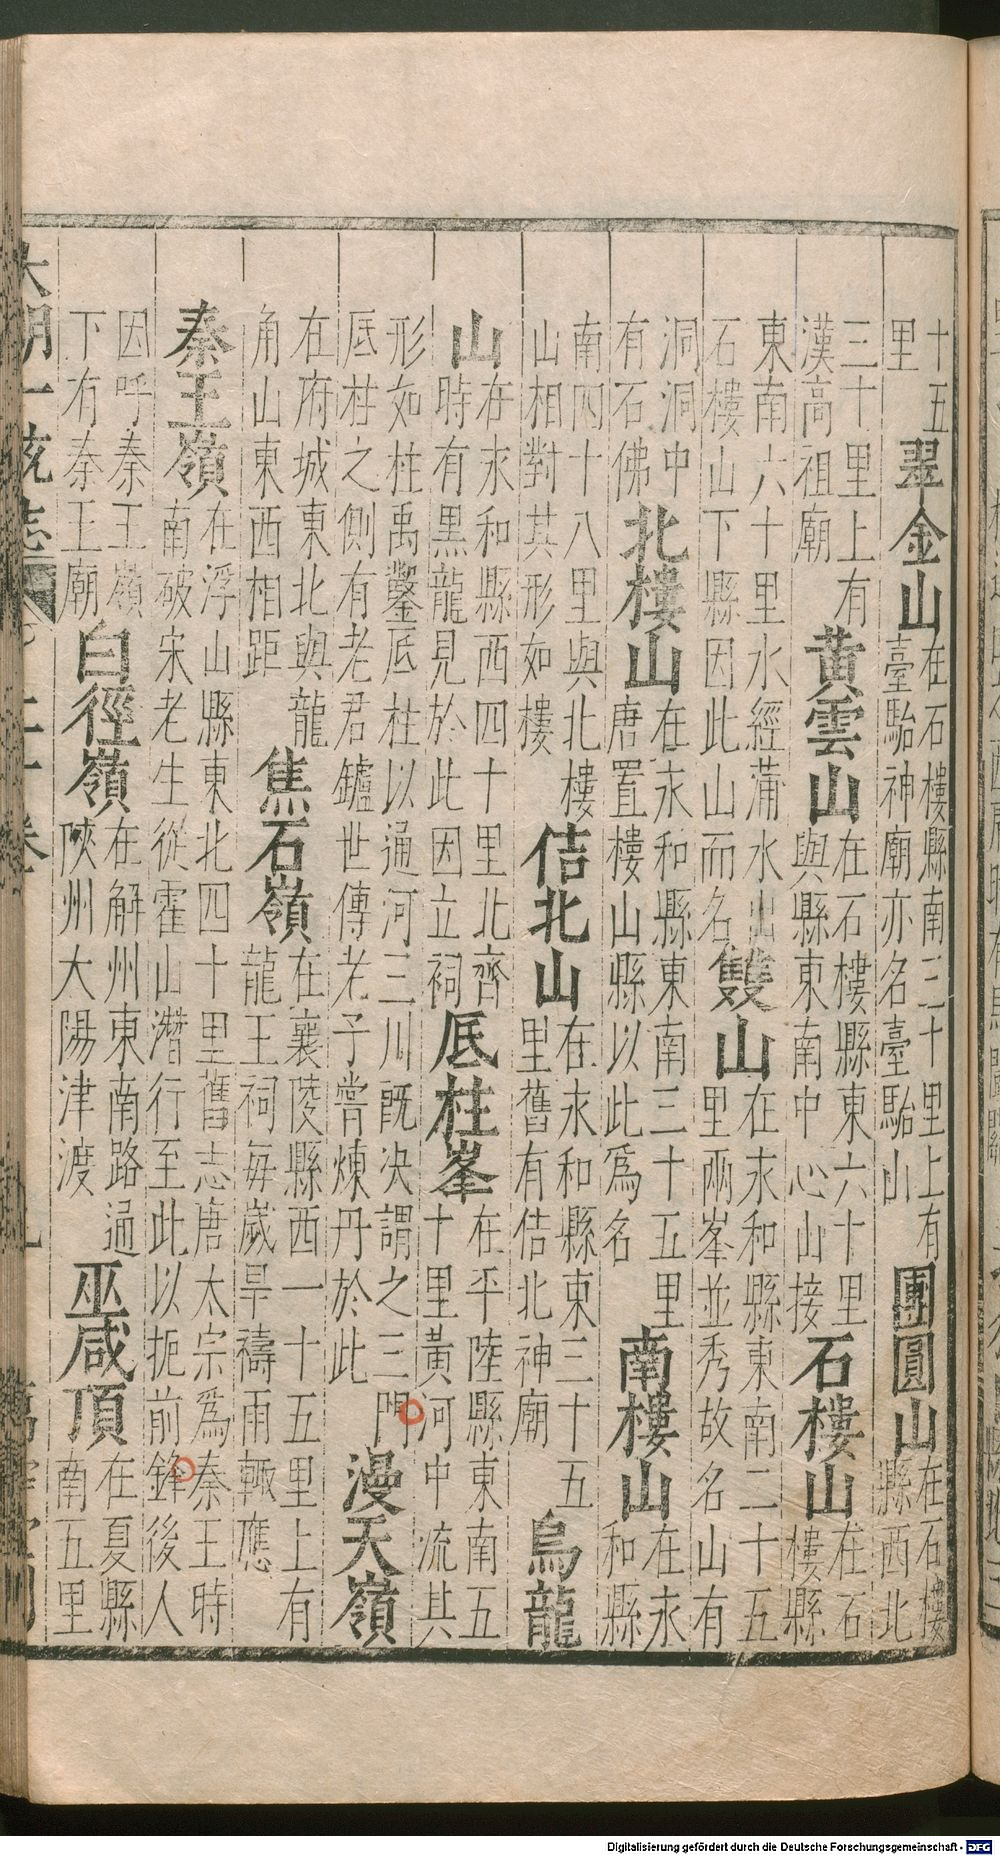 十五里翠金山在石樓縣南三十里上有臺駘神廟亦名臺駘山團圓山在石樓縣西北
三十里上有漢高祖廟黃雲山在石樓縣東六十里與縣東南中心山接石樓山在石樓縣
東南六十里水經蒲水出石樓山下縣因此山而名雙山在永和縣東南二十五里兩峯並秀故名山有
洞洞中有石佛北樓山在永和縣東南三十五里唐置樓山縣以此爲名南樓山在永和縣
南四十八里與北樓山相對其形如樓佶北山在永和縣東三十五里舊有佶北神廟烏龍
山在永和縣西四十里北齊時有黑龍見於此因立祠底柱峯在平陸縣東南五十里黃河中流其
形如柱禹鑿底柱以通河三川既决謂之三門底柱之側有老君鑪世傳老子嘗煉丹於此漫天嶺
在府城東北與龍角山東西相距焦石嶺在襄陵縣西一十五里上有龍王祠每歲旱禱雨輒應
秦王嶺在浮山縣東北四十里舊志唐太宗爲秦王時南破宋老生從霍山潛行至此以扼前鋒後人
因呼秦王嶺下有秦王廟白徑嶺在解州東南路通陝州大陽津渡巫咸頂在夏縣南五里
大明一統志 二十卷
Digitalisierung gefördert durch die Deutsche Forschungsgemeinschaft - DFG